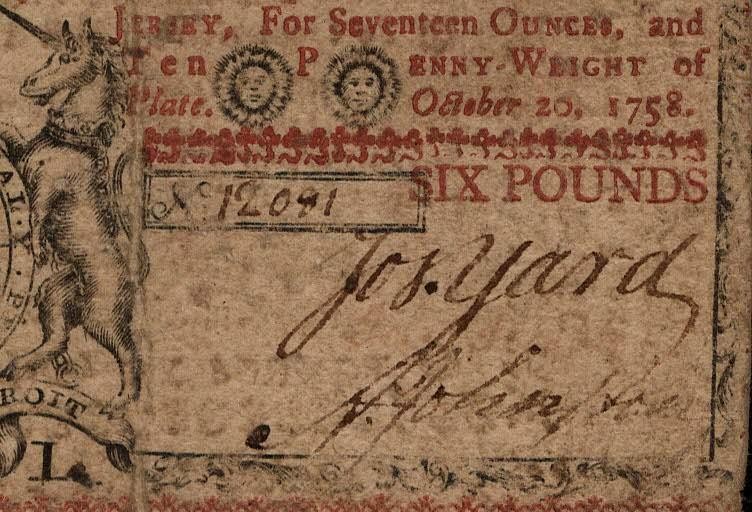 JERSEY, For Seventeen OUNCES, and
Ten PENNY-WEIGHT of
Plate. October 20, 1758.
SIX POUNDS
No. 12091
Jos. Yard
Johnston
ROIT
L